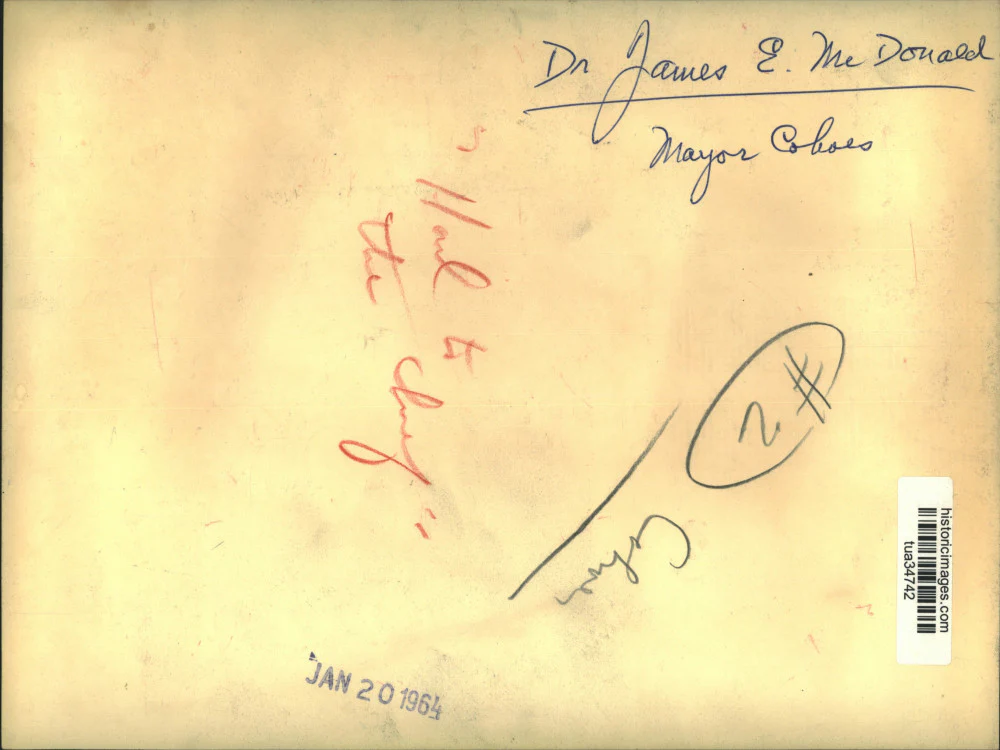 Dr James E. McDonald
Mayor Cohoes
"Hail to
the chief"
# 2
JAN 20 1964
historicimages.com
tua34742